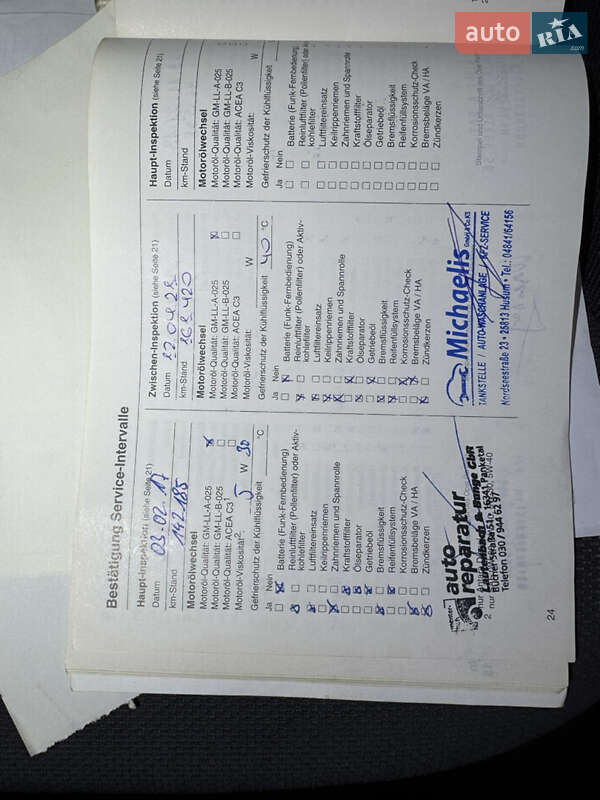 auto RIA .com
Bestätigung Service-Intervalle
Haupt-Inspektion (siehe Seite 21)
Datum 03.02.17
km-Stand 142.185
Motorölwechsel
Motoröl-Qualität: GM-LL-A-025
Motoröl-Qualität: GM-LL-B-025
Motoröl-Qualität: ACEA C3¹
Motoröl-Viskosität²: 5 W 30
Gefrierschutz der Kühlflüssigkeit °C
Ja Nein
Batterie (Funk-Fernbedienung)
Reinluftfilter (Pollenfilter) oder Aktiv-
kohlefilter
Luftfiltereinsatz
Keilrippenriemen
Zahnriemen und Spannrolle
Kraftstofffilter
Ölseparator
Getriebeöl
Bremsflüssigkeit
Reifenfüllsystem
Korrosionsschutz-Check
Bremsbeläge VA / HA
Zündkerzen
auto
reparatur
Telefon 030 / 944 62 97
24
Zwischen-Inspektion (siehe Seite 21)
Datum
km-Stand
Motorölwechsel
Motoröl-Qualität: GM-LL-A-025
Motoröl-Qualität: GM-LL-B-025
Motoröl-Qualität: ACEA C3
Motoröl-Viskosität: W
Gefrierschutz der Kühlflüssigkeit 40 °C
Ja Nein
Batterie (Funk-Fernbedienung)
Reinluftfilter (Pollenfilter) oder Aktiv-
kohlefilter
Luftfiltereinsatz
Keilrippenriemen
Zahnriemen und Spannrolle
Kraftstofffilter
Ölseparator
Getriebeöl
Bremsflüssigkeit
Reifenfüllsystem
Korrosionsschutz-Check
Bremsbeläge VA / HA
Zündkerzen
Michaelis GmbH & Co. KG
TANKSTELLE / AUTO-WASCHANLAGE / KFZ-SERVICE
Nordseestraße 23 • 25813 Husum • Tel.: 04841/64156
Haupt-Inspektion (siehe Seite 21)
Datum
km-Stand
Motorölwechsel
Motoröl-Qualität: GM-LL-A-025
Motoröl-Qualität: GM-LL-B-025
Motoröl-Qualität: ACEA C3
Motoröl-Viskosität: W
Gefrierschutz der Kühlflüssigkeit
Ja Nein
Batterie (Funk-Fernbedienung)
Reinluftfilter (Pollenfilter) oder
kohlefilter
Luftfiltereinsatz
Keilrippenriemen
Zahnriemen und Spannrolle
Kraftstofffilter
Ölseparator
Getriebeöl
Bremsflüssigkeit
Reifenfüllsystem
Korrosionsschutz-Check
Bremsbeläge VA / HA
Zündkerzen